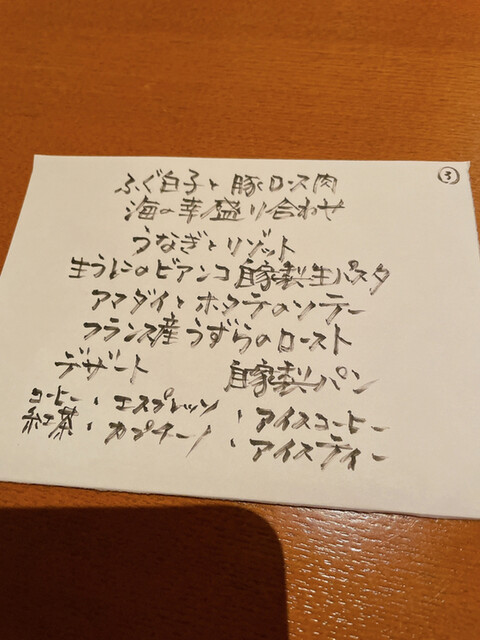 ③
ふぐ白子と豚ロース肉
海の幸盛り合わせ
うなぎとリゾット
生うにのビアンコ自家製生パスタ
アマダイとホタテのソテー
フランス産うずらのロースト
デザート 自家製パン
コーヒー・エスプレッソ・アイスコーヒー
紅茶・カプチーノ・アイスティー